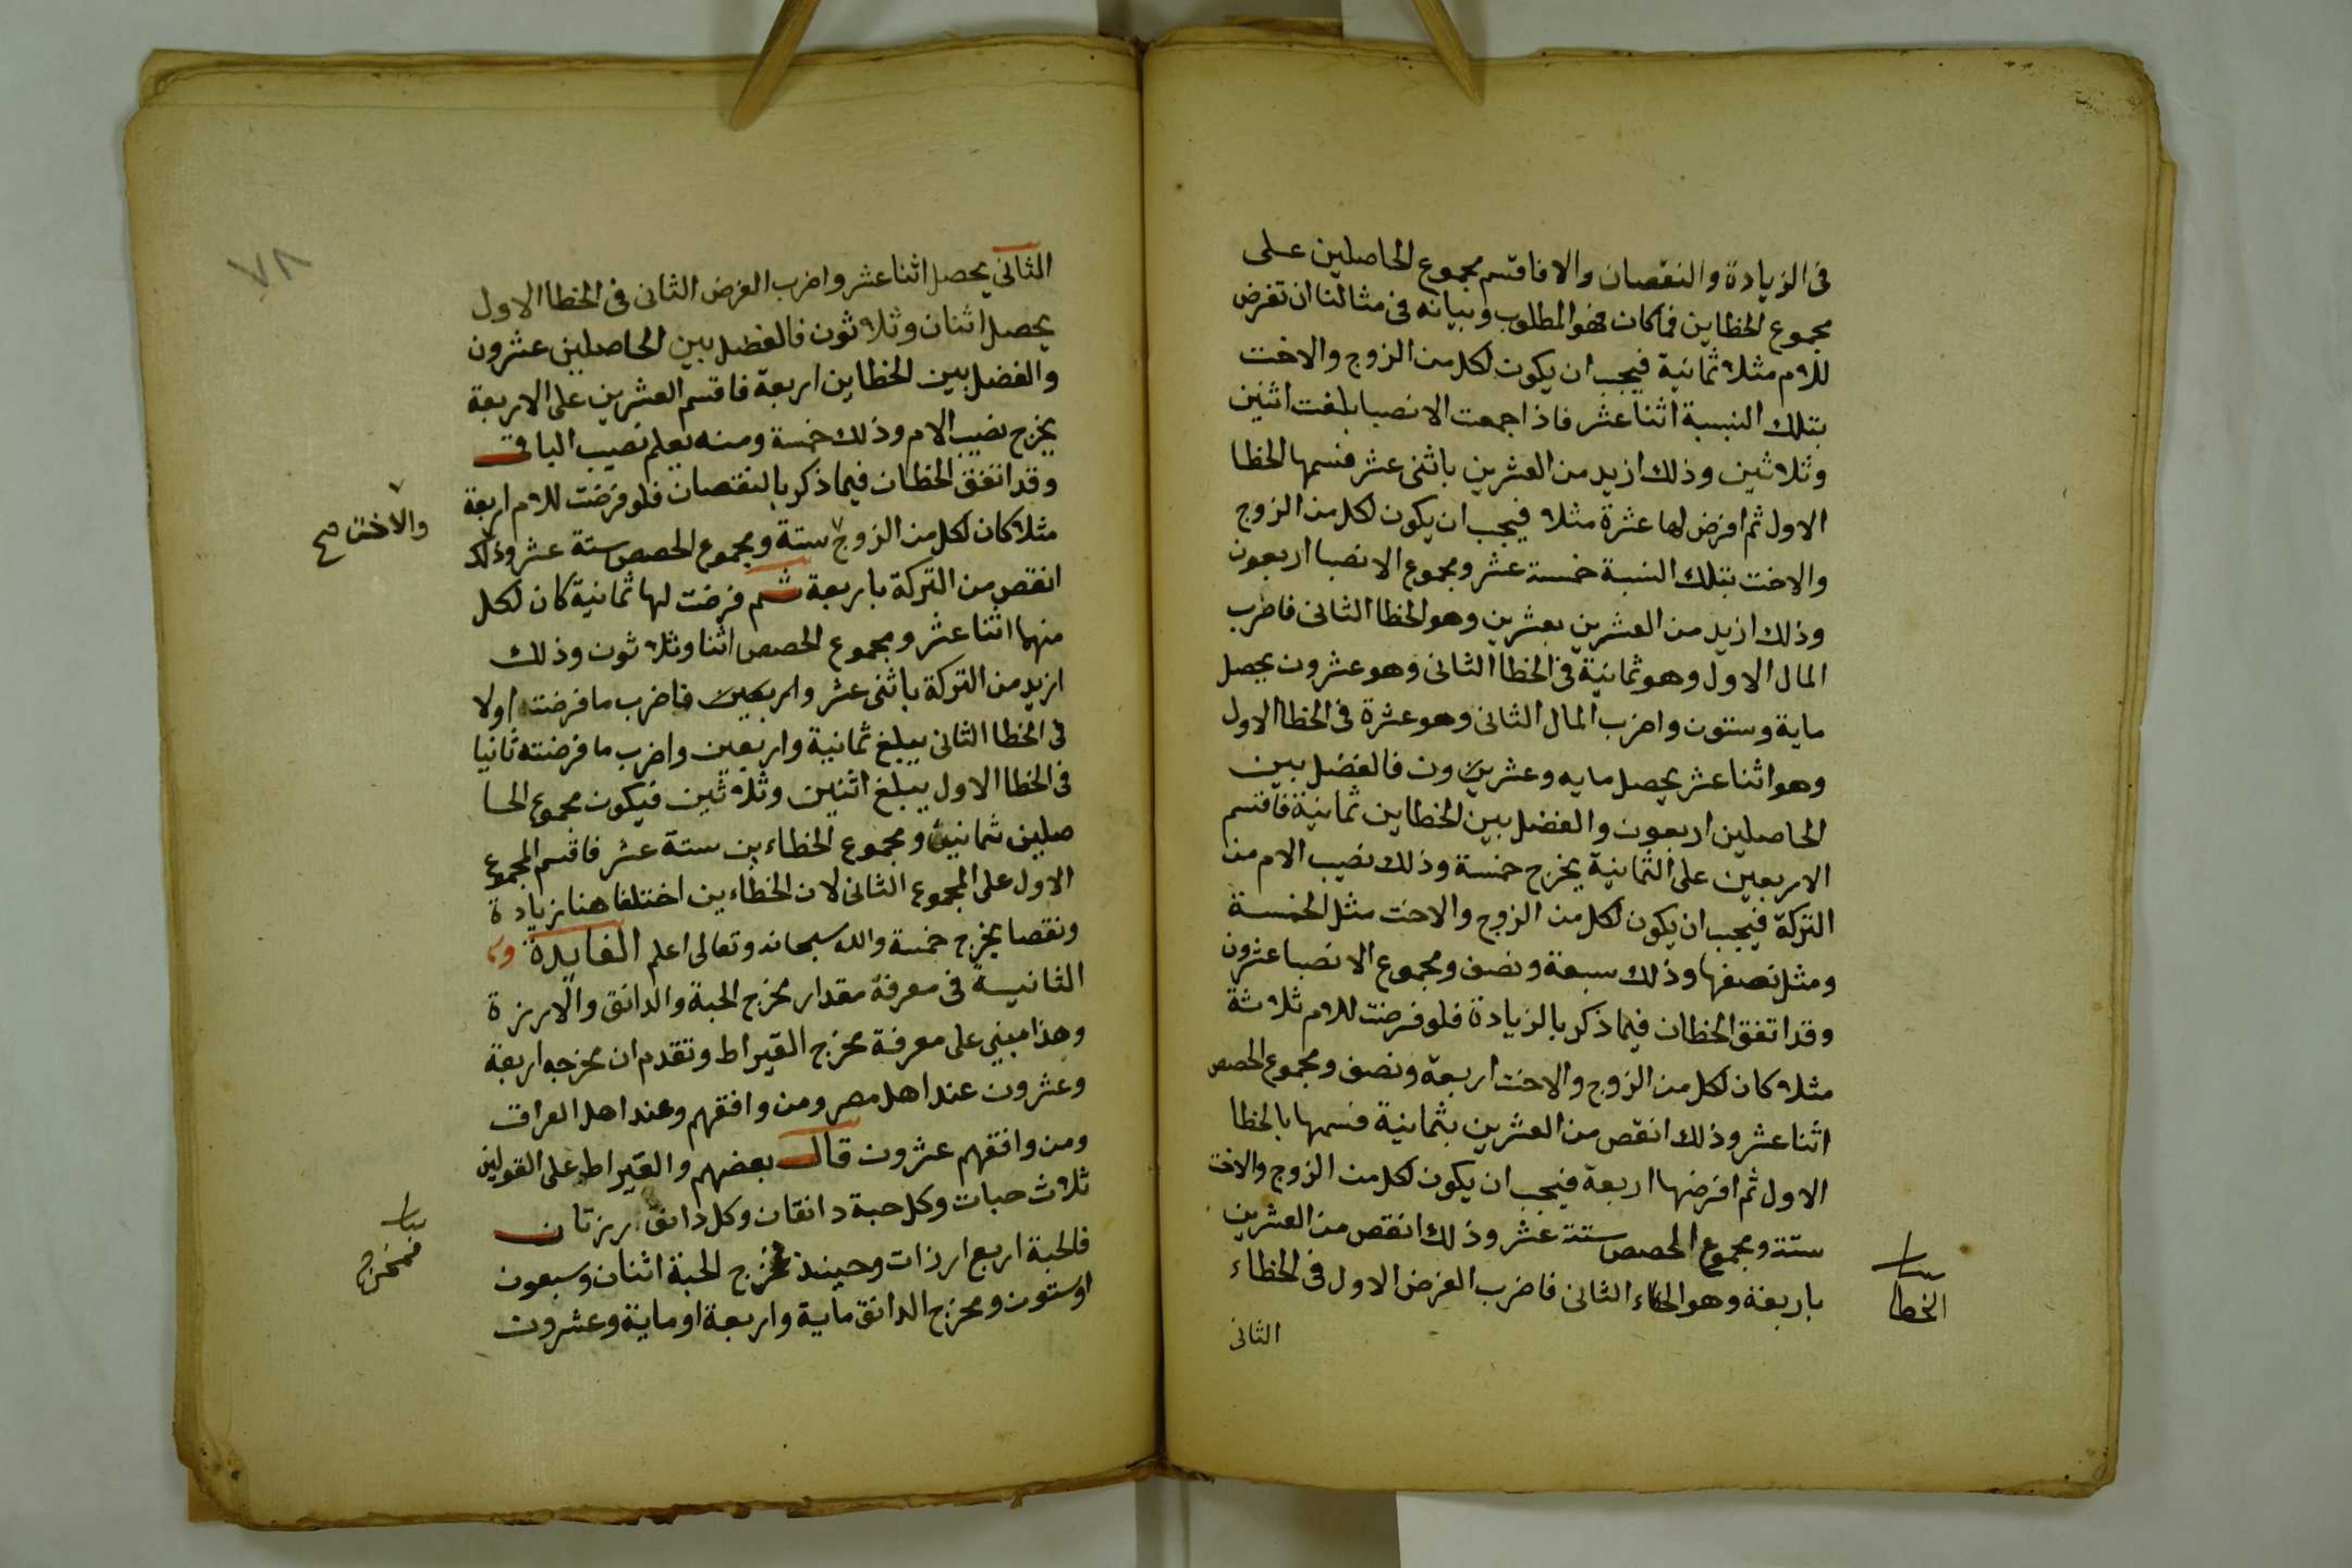 فى الزيادة والنقصان والا فاقسم مجموع الحاصلين على
مجموع الخطاين فما كان فهو المطلوب وبيانه فى مثالنا ان تفرض
للام مثلا ثمانية فيجب ان يكون لكل من الزوج والاخت
بتلك النسبة اثنا عشر فاذا جمعت الانصبا بلغت اثنين
وثلاثين وذلك ازيد من العشرين باثنى عشر فسمها الخطا
الاول ثم افرض لها عشرة مثلا فيجب ان يكون لكل من الزوج
والاخت بتلك النسبة خمسة عشر ومجموع الانصبا اربعون
وذلك ازيد من العشرين بعشرين وهو الخطا الثانى فاضرب
المال الاول وهو ثمانية فى الخطا الثانى وهو عشرون يحصل
ماية وستون واضرب المال الثانى وهو عشرة فى الخطا الاول
وهو اثنا عشر يحصل مايه وعشرين ون فالفضل بين
الحاصلين اربعون والفضل بين الخطاين ثمانية فاقسم
الاربعين على الثمانية يخرج خمسة وذلك نصيب الام من
التركة فيجب ان يكون لكل من الزوج والاخت مثل الخمسة
ومثل نصفها وذلك سبعة ونصف ومجموع الانصبا عشرون
وقد اتفق الخطان فيما ذكر بالزيادة فلو فرضت للام ثلاثة
مثلا كان لكل من الزوج والاخت اربعة ونصف ومجموع الحصص
اثنا عشر وذلك انقص من العشرين بثمانية فسمها بالخطا
الاول ثم افرضها اربعة فيجب ان يكون لكل من الزوج والاخت
ستة ومجموع الحصص ستة عشر وذلك انقص من العشرين
باربعة وهو الثانى فاضرب الفرض الاول فى الخطاء
الخطا
الثانى
٧٨
الثانى يحصل اثنا عشر واضرب الفرض الثانى فى الخطا الاول
يحصل اثنان وثلاثون فالفضل بين الحاصلين عشرون
والفضل بين الخطاين اربعة فاقسم العشرين على الاربعة
يخرج نصيب الام وذلك خمسة ومنه يعلم نصيب الباقى
وقد اتفق الخطان فيما ذكر بالنقصان فلو فرضت للام اربعة
مثلا كان لكل من الزوج ستة ومجموع الحصص ستة عشر وذلك
والاخت صح
انقص من التركة باربعة ثم فرضت لها ثمانية كان لكل
منهما اثنا عشر ومجموع الحصص اثنا وثلاثون وذلك
ازيد من التركة باثنى عشر واربعين فاضرب ما فرضته اولا
فى الخطا الثانى يبلغ ثمانية واربعين واضرب ما فرضته ثانيا
فى الخطا الاول يبلغ اثنين وثلاثين فيكون مجموع الحا
صلين ثمانين ومجموع الخطاءين ستة عشر فاقسم المجموع
الاول على المجموع الثانى لان الخطاءين اختلفا هنا زيادة
ونقصا يخرج خمسة والله سبحانه وتعالى اعلم الفايدة
الثانية فى معرفة مقدار مخرج الحبة والدانق والارزة
وهذا مبنى على معرفة مخرج القيراط وتقدم ان مخرجه اربعة
وعشرون عند اهل مصر ومن وافقهم وعند اهل العراق
ومن وافقهم عشرون قال بعضهم والقيراط على القولين
ثلاث حبات وكل حبة دانقان وكل دانق ارزتان
فالحبة اربع ارزات وحينئذ مخرج الحبة اثنان وسبعون
فمخرج
او ستون ومخرج الدانق ماية واربعة او ماية وعشرون